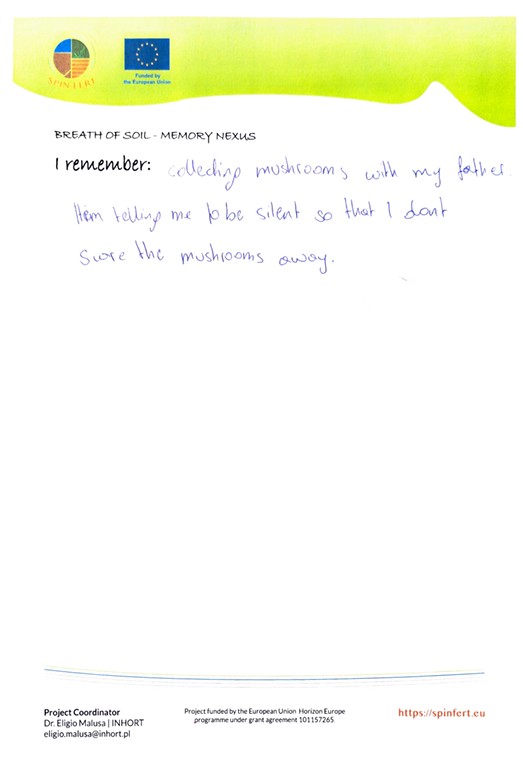 SPINFERT
Funded by
the European Union
BREATH OF SOIL - MEMORY NEXUS
I remember: collecting mushrooms with my father.
Him telling me to be silent so that I dont
scare the mushrooms away.
Project Coordinator
Dr. Eligio Malusa | INHORT
eligio.malusa@inhort.pl
Project funded by the European Union Horizon Europe
programme under grant agreement 101157265
https://spinfert.eu